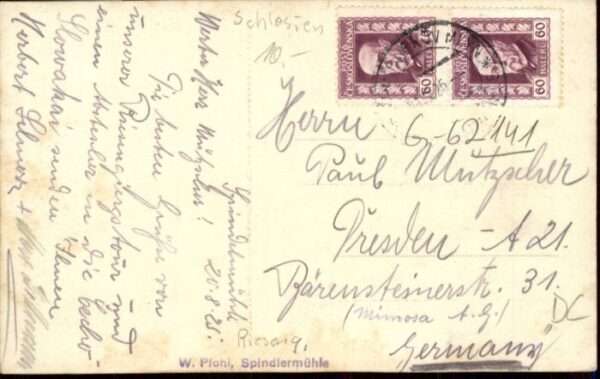 Schlesien
10,-
ČESKOSLOVENSKÁ
60
60
60
60
G-62141
Herrn
Paul Mutzscher
Dresden - A 21.
Bärensteinerstr. 31.
(Mimosa A.G.)
DC
Germany
Spindelmühle
20.8.28.
Werter Herr
die besten Grüße von
unserer Riesengebirgstour und
einen Abstecher in die
Slowakei senden Ihnen
Herbert
Riesang,
W. Pfohl, Spindlermühle